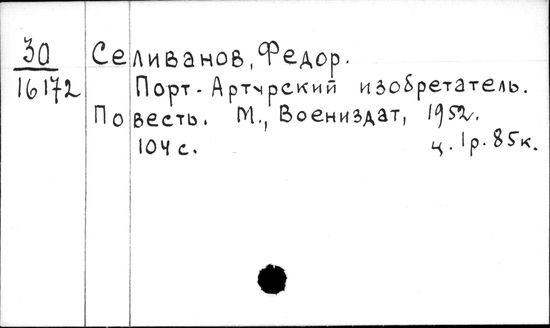 30 Селиванов, Федор.
16172 Порт-Артурский изобретатель.
Повесть. М., Воениздат, 1952.
104 с. ц. 1р. 85к.